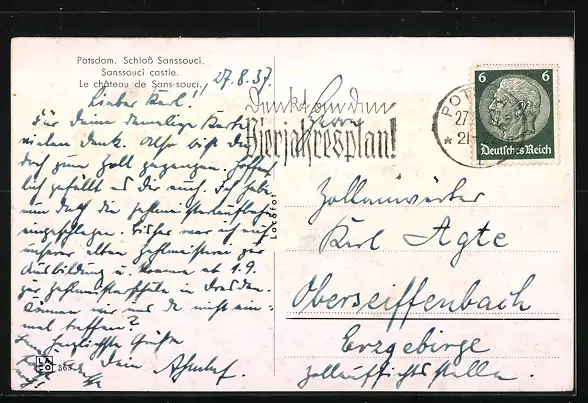 Potsdam. Schloß Sanssouci.
Sanssouci castle.
Le château de Sans-souci.
27.8.37.
Lieber Karl!
Für Deine damalige Karte
vielen Dank. Also bist Du
doch zum Zoll gegangen. Hoffent-
lich gefällt es Dir auch. Ich habe
nun doch die Zahlmeisterlaufbahn
eingeschlagen. Bisher war ich auf
unserer alten Zahlmeisterei zur
Ausbildung u. komme ab 1.9.
zur Zahlmeisterschule in Dresden.
Können wir uns da nicht ein-
mal treffen?
herzlichste Grüße
Dein
Lacofot
LACO
363
Denkt an den
Vierjahresplan!
Herrn
POT
27
6 6
Deutsches Reich
Zollanwärter
Karl Agte
Oberseiffenbach
Erzgebirge
Zollaufsichtsstelle.